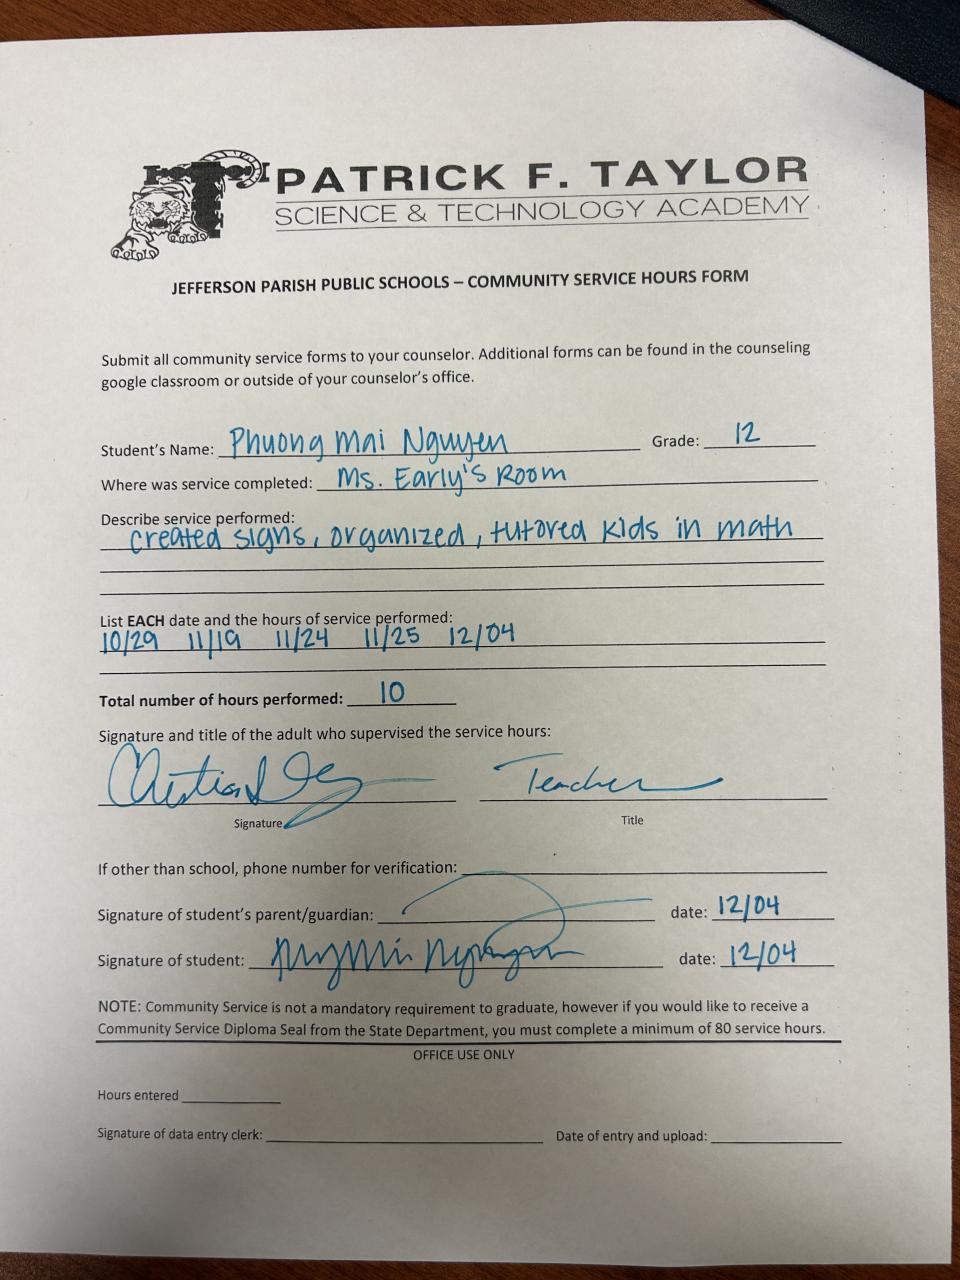 PATRICK F. TAYLOR
SCIENCE & TECHNOLOGY ACADEMY
JEFFERSON PARISH PUBLIC SCHOOLS – COMMUNITY SERVICE HOURS FORM
Submit all community service forms to your counselor. Additional forms can be found in the counseling
google classroom or outside of your counselor's office.
Student's Name: Phuong Mai Nguyen Grade: 12
Where was service completed: Ms. Early's Room
Describe service performed:
created signs, organized, tutored kids in math
List EACH date and the hours of service performed:
10/29 11/19 11/24 11/25 12/04
Total number of hours performed: 10
Signature and title of the adult who supervised the service hours:
Teacher
Signature Title
If other than school, phone number for verification:
Signature of student's parent/guardian: date: 12/04
Signature of student: date: 12/04
NOTE: Community Service is not a mandatory requirement to graduate, however if you would like to receive a
Community Service Diploma Seal from the State Department, you must complete a minimum of 80 service hours.
OFFICE USE ONLY
Hours entered
Signature of data entry clerk: Date of entry and upload: